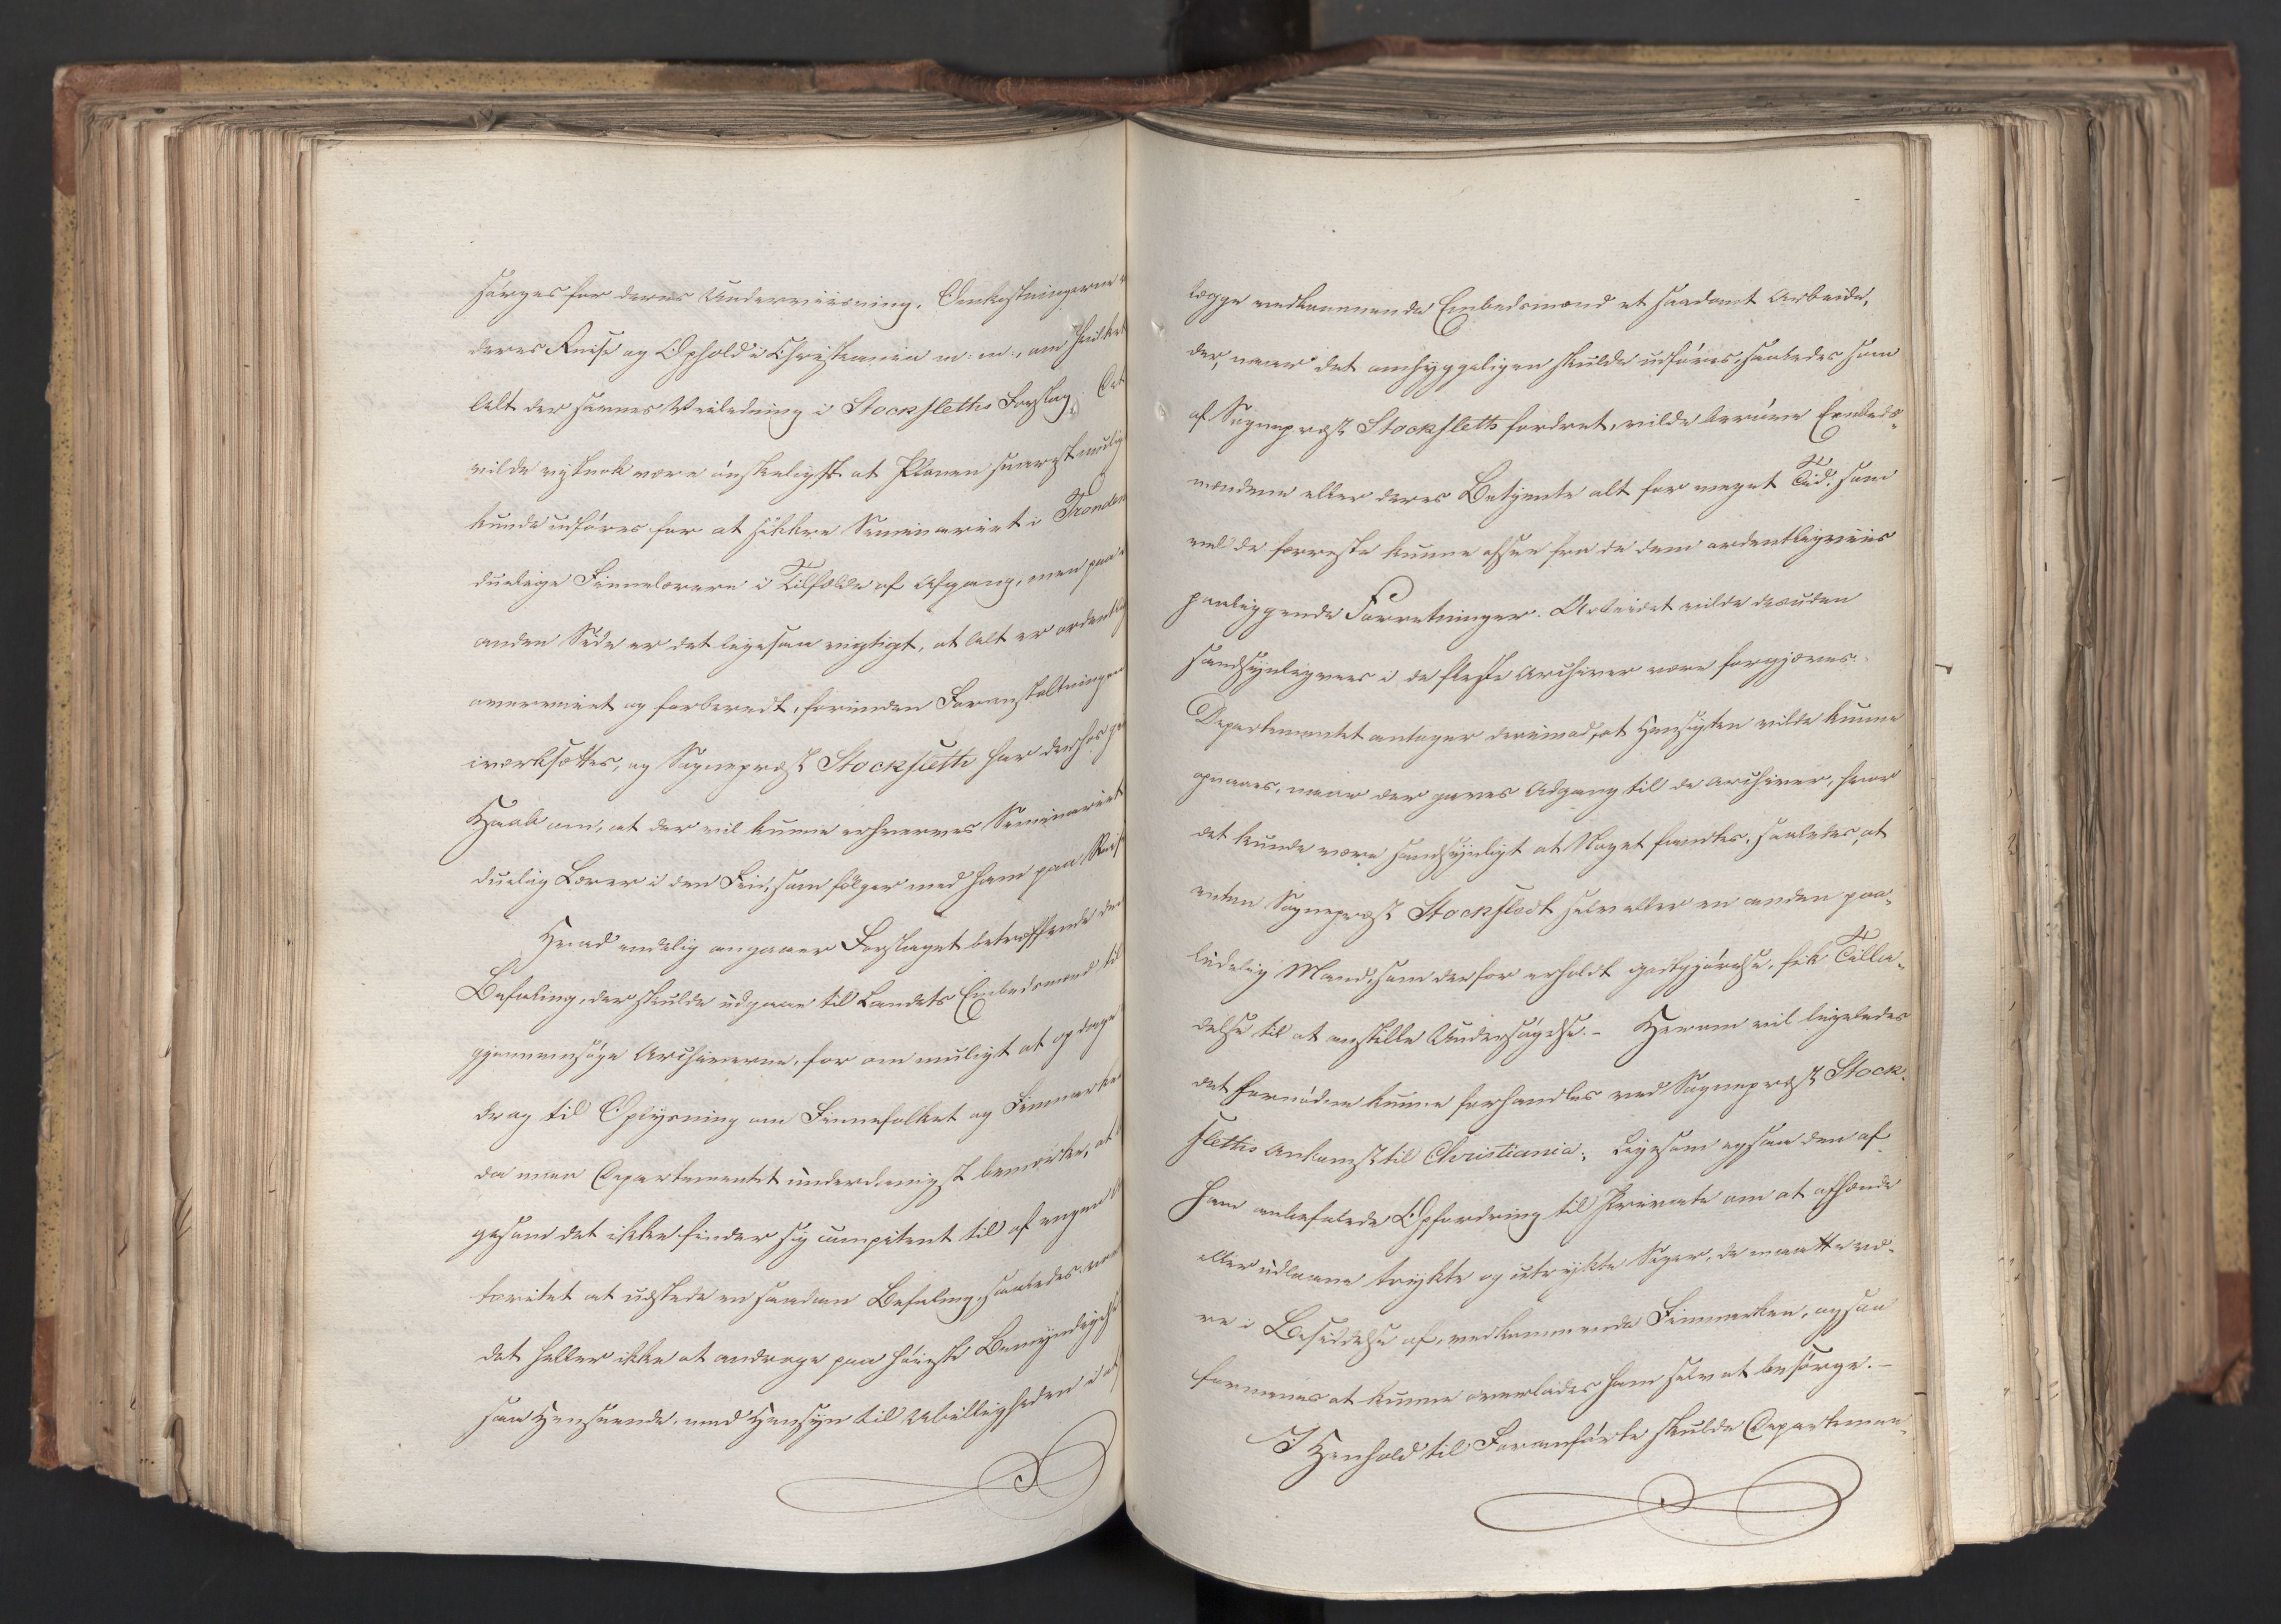 sørges for deres Underviisning. Omkostningerne
deres Reise og Ophold i Christiania m: m:, om hvilket
Alt der savnes Veiledning i Stockfleths Forslag. Det
vilde vistnok være ønskeligst at Planen snarest mulig
kunde udføres for at sikkre Seminariet i Tronden
duelige Finnelærere i Tilfælde af Afgang, men paa
anden Side er det ligesaa vigtigt, at Alt er ordentlig
overveiet og forberedt, forinden Foranstaltningen
iværksættes, og Sognepræst Stockfleth har derhos
Haab om, at der vil kunne erhverves Seminariet
duelig Lærer i den Fin, som følger med ham paa Reise
Hvad endelig angaaer Forslaget betræffende den
Befaling, der skulde udgaae til Landets Embedsmænd til
gjennemsøge Archiverne, for om muligt at opdage
drag til Oplysning om Finnefolket og Finmarken
da maa Departementet underdanigst bemærke, at
gesom det ikke finder sig competent til af egen
toritet at udstede en saadan Befaling, saaledes
det heller ikke at andrage paa høieste Bemyndigelse
saa Henseende, med Hensyn til Ubilligheden i at
lægge vedkommende Embedsmænd et saadant Arbeide,
der, naar det omhyggeligen skulde udføres, saaledes som
af Sognepræst Stockfleth fordret, vilde berøve Embeds-
mændene eller deres Betjente alt for meget Tid, som
vel de færreste kunne afsee fra de dem ordentligviis
paaliggende Forretninger. Arbeidet vilde desuden
sandsynligviis i de fleste Archiver være forgjæves.
Departementet antager derimod, at Hensigten vilde kunne
opnaaes, naar der gaves Adgang til de Archiver, hvor
det kunde være sandsynligt at Noget fandtes, saaledes, at
enten Sognepræst Stockfledt selv eller en anden paa-
lidelig Mand, som derfor erholdt Godtgjørelse, fik Tilla-
delse til at anstille Undersøgelse. - Herom vil ligeledes
det fornødne kunne forhandles ved Sognepræst Stock-
fleths Ankomst til Christiania; Ligesom ogsaa den af
ham anbefalede Opfordring til Private om at afhænde
eller udlaane trykte og utrykte Sager, de maatte væ-
re i Besiddelse af, vedkommende Finmarken, ogsaa
formenes at kunne overlades ham selv at besørge. -
I Henhold til Foranførte skulde Departemen-